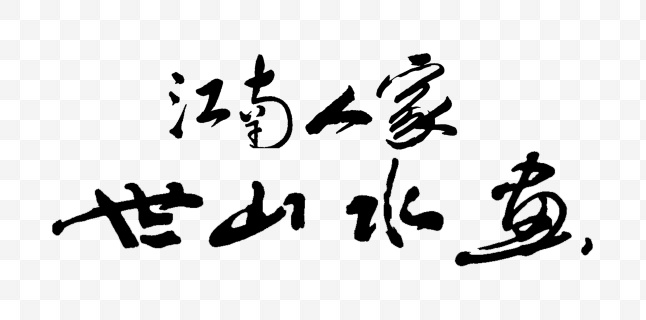 江南人家
世山水画